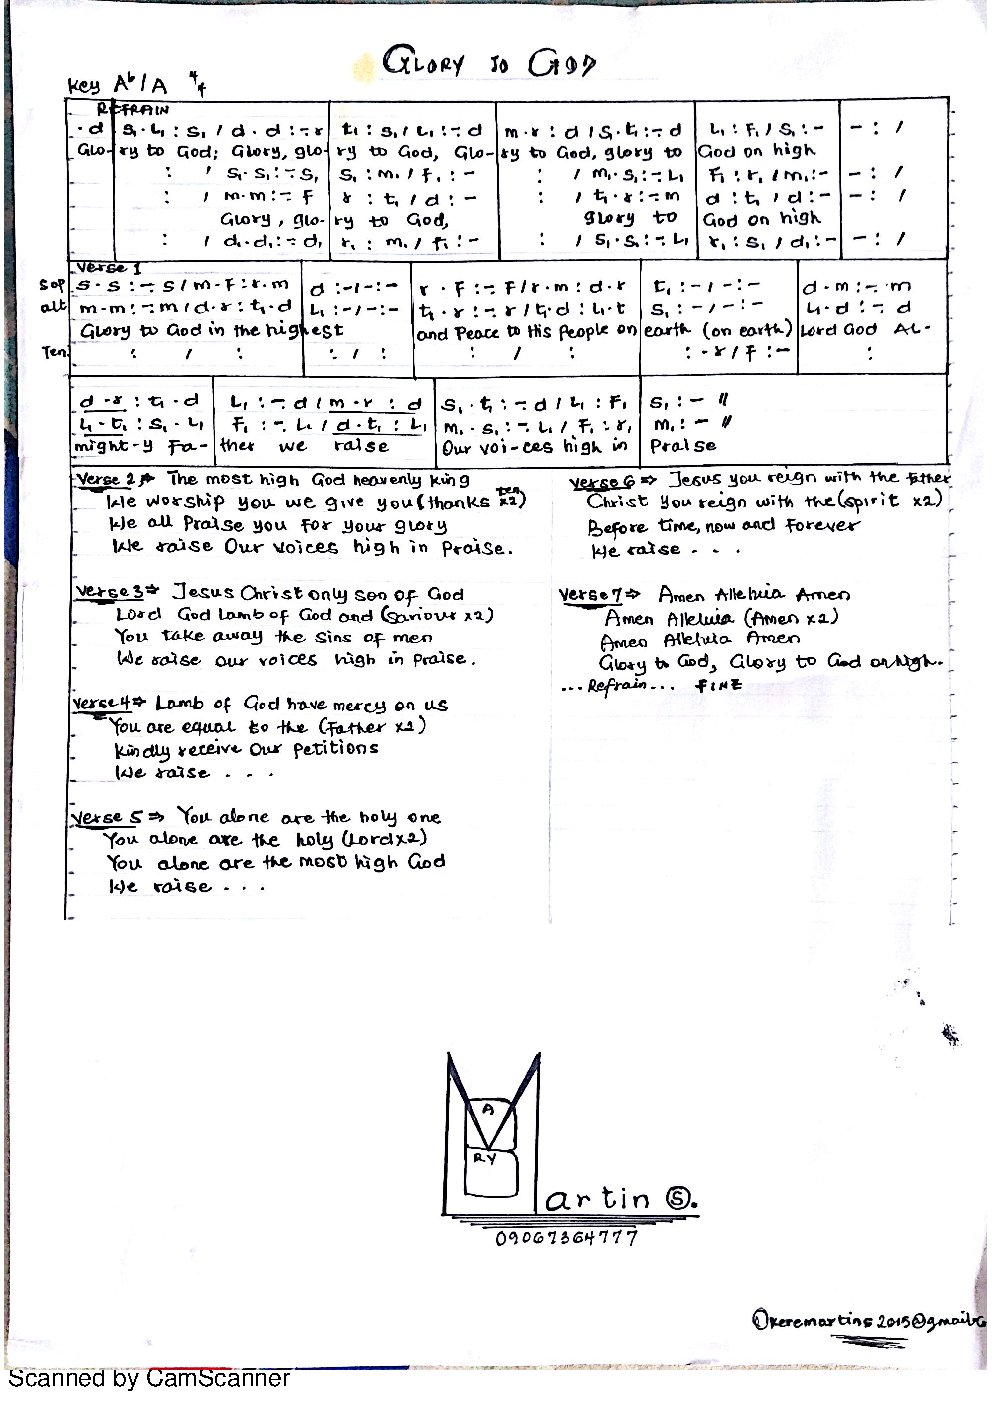 GLORY TO GOD
Key Aᵇ/A 4/4
REFRAIN
.d | s₁.l₁ : s₁ / d.d :-.r | t₁ : s₁ / l₁ :-.d | m.r : d / s₁.t₁ :-.d | l₁ : f₁ / s₁ :- | - : /
Glo- ry to God; Glory, glo- ry to God, Glo- ry to God, glory to God on high
: / s₁.s₁ :-.s₁ | s₁ : m₁ / f₁ :- | : / m₁.s₁ :-.l₁ | f₁ : r₁ / m₁ :- | - : /
: / m.m :-.f | r : t₁ / d :- | : / t₁.r :-.m | d : t₁ / d :- | - : /
Glory, glo- ry to God, glory to God on high
: / d₁.d₁ :-.d₁ | r₁ : m₁ / f₁ :- | : / s₁.s₁ :-.l₁ | r₁ : s₁ / d₁ :- | - : /
Verse 1
Sop s.s :-.s / m.f : r.m | d :-/-:- | r.f :-.f / r.m : d.r | t₁ :-/-:- | d.m :-.m
alt m.m :-.m / d.r : t₁.d | l₁ :-/-:- | t₁.r :-.r / t₁.d : l₁.t | s₁ :-/-:- | l₁.d :-.d
Glory to God in the highest and Peace to His People on earth (on earth) Lord God AL-
Ten : / : | : / : | : / : | : .r / f :- | :
d.r : t₁.d | l₁ :-.d / m.r : d | s₁.t₁ :-.d / l₁ : f₁ | s₁ :- //
l₁.t₁ : s₁.l₁ | f₁ :-.l₁ / d.t₁ : l₁ | m₁.s₁ :-.l₁ / f₁ : r₁ | m₁ :- //
might-y Fa- ther we raise Our voi-ces high in Praise
Verse 2 ⇒ The most high God heavenly king
We worship you we give you (thanks ten x2)
We all Praise you for your glory
We raise Our voices high in Praise.
Verse 3 ⇒ Jesus Christ only son of God
Lord God Lamb of God and (Saviour x2)
You take away the sins of men
We raise our voices high in Praise.
Verse 4 ⇒ Lamb of God have mercy on us
You are equal to the (Father x2)
Kindly receive Our Petitions
We raise . . .
Verse 5 ⇒ You alone are the holy one
You alone are the holy (Lord x2)
You alone are the most high God
We raise . . .
Verse 6 ⇒ Jesus you reign with the father
Christ you reign with the (spirit x2)
Before time, now and forever
We raise . . .
Verse 7 ⇒ Amen Alleluia Amen
Amen Alleluia (Amen x2)
Amen Alleluia Amen
Glory to God, Glory to God on high.
...Refrain... FINE
A
RY
Martin Ⓢ.
09067364777
Okeremartins2015@gmail.c
Scanned by CamScanner